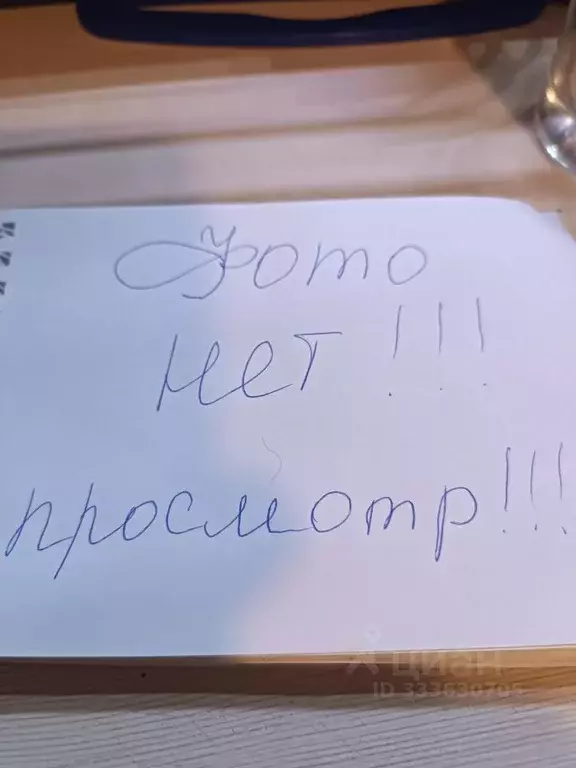 Фото
нет!!!
просмотр!!!
циан
ID 333630706